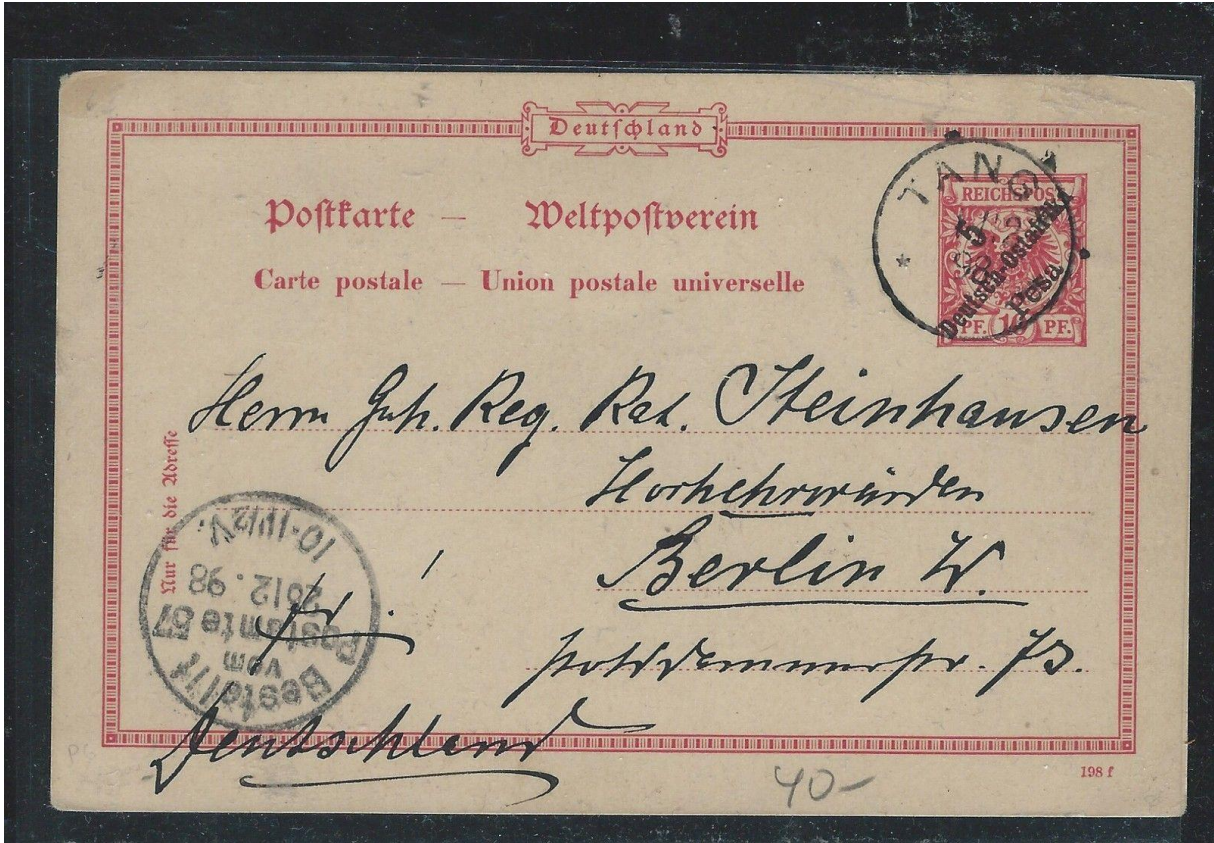 Deutschland
Postkarte — Weltpostverein
Carte postale — Union postale universelle
TANG
REICHSPOST
5
Deutsch-Ostafrika
Pesa
PF. 10 PF.
Herrn Geh. Reg. Rat. Steinhausen
Hochehrwürden
Berlin W.
Potsdamerstr. 73.
Deutschland
Nur für die Adresse
Bestellt
vom
Postamte 57
2612.98
10-11½V.
40-
198 f